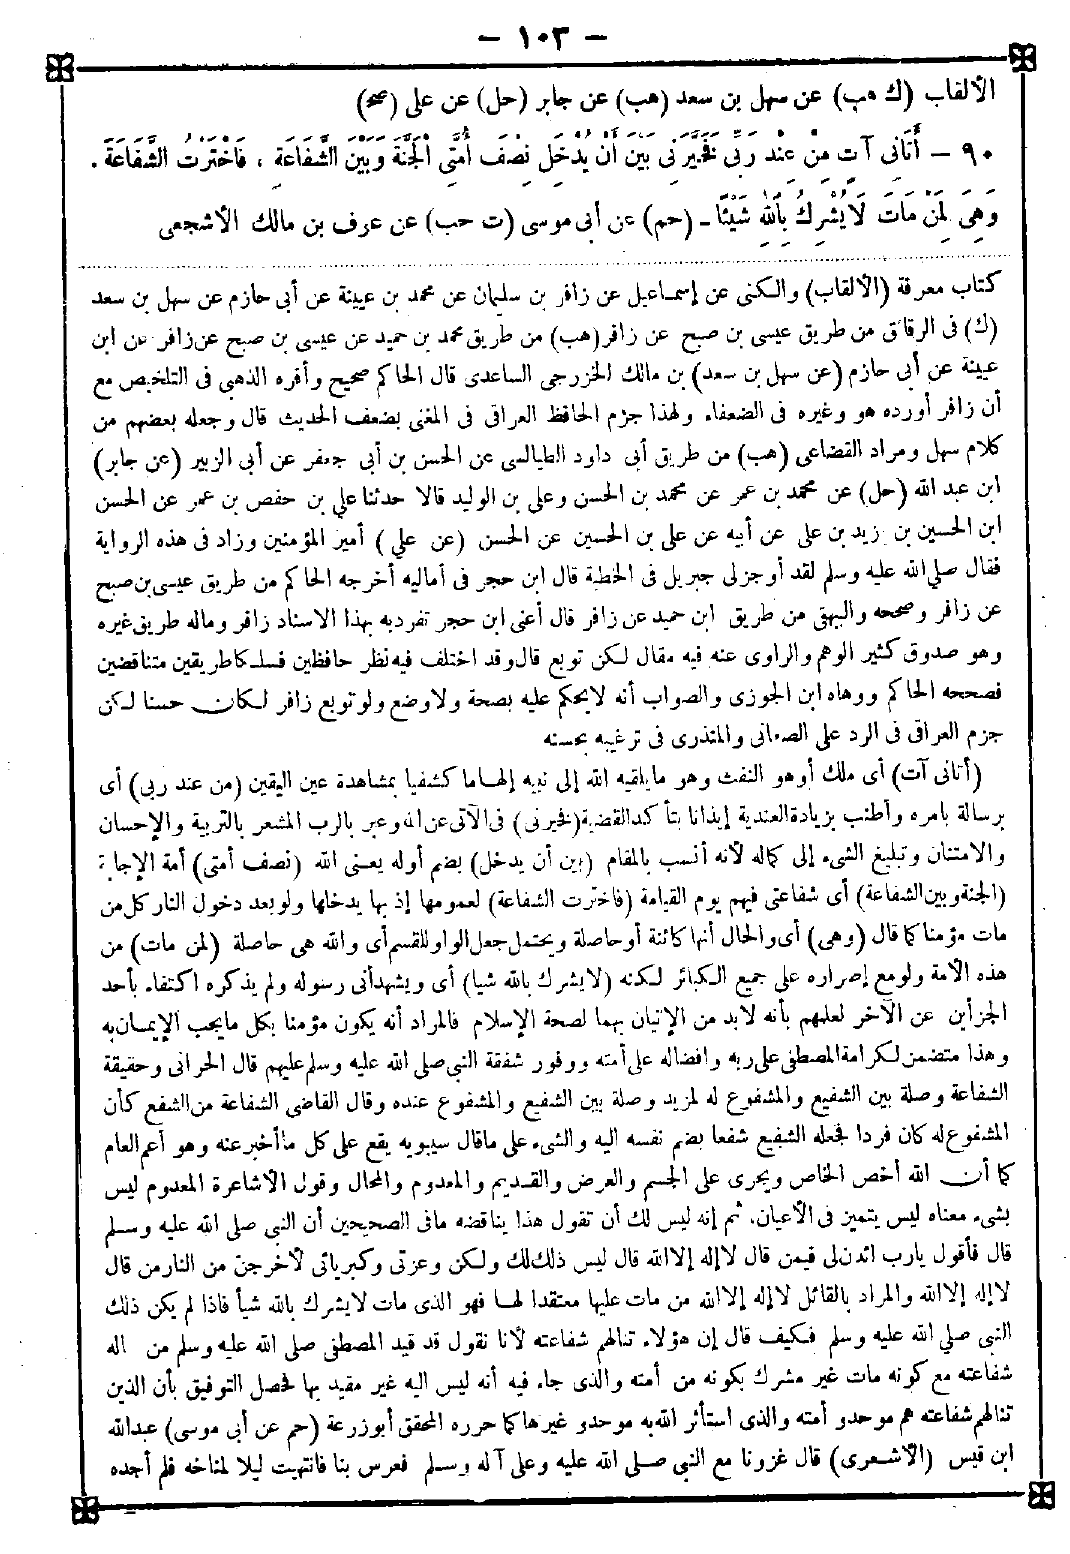 – ١٠٣ –
الألقاب (ك هب) عن سهل بن سعد (هب) عن جابر (حل) عن على (صح)
٩٠ – أَتَانِى آتٍ مِنْ عِنْدِ رَبِّى فَخَيَّرَنِى بَيْنَ أَنْ يُدْخِلَ نِصْفَ أُمَّتِى الْجَنَّةَ وَبَيْنَ الشَّفَاعَةِ ، فَاخْتَرْتُ الشَّفَاعَةَ .
وَهِىَ لِمَنْ مَاتَ لَا يُشْرِكُ بِاَللهِ شَيْئًا ـ (حم) عن أبى موسى (ت حب) عن عوف بن مالك الأشجعى
كتاب معرفة (الألقاب) والكنى عن إسماعيل عن زافر بن سليمان عن محمد بن عيينة عن أبى حازم عن سهل بن سعد
(ك) فى الرقائق من طريق عيسى بن صبح عن زافر (هب) من طريق محمد بن حميد عن عيسى بن صبح عن زافر عن ابن
عيينة عن أبى حازم (عن سهل بن سعد) بن مالك الخزرجى الساعدى قال الحاكم صحيح وأقره الذهبى فى التلخيص مع
أن زافر أورده هو وغيره فى الضعفاء ولهذا جزم الحافظ العراقى فى المغنى بضعف الحديث قال وجعله بعضهم من
كلام سهل ومراد القضاعى (هب) من طريق أبى داود الطيالسى عن الحسن بن أبى جعفر عن أبى الزبير (عن جابر)
ابن عبد الله (حل) عن محمد بن عمر عن محمد بن الحسن وعلى بن الوليد قالا حدثنا على بن حفص بن عمر عن الحسن
ابن الحسين بن زيد بن على عن أبيه عن على بن الحسين عن الحسن (عن على) أمير المؤمنين وزاد فى هذه الرواية
فقال صلى الله عليه وسلم لقد أوجز لى جبريل فى الخطبة قال ابن حجر فى أماليه أخرجه الحاكم من طريق عيسى بن صبح
عن زافر وصححه والبيهقى من طريق ابن حميد عن زافر قال أعنى ابن حجر تفرد به بهذا الاسناد زافر وماله طريق غيره
وهو صدوق كثير الوهم والراوى عنه فيه مقال لكن توبع قال وقد اختلف فيه نظر حافظين فسلكا طريقين متناقضين
فصححه الحاكم ووهاه ابن الجوزى والصواب أنه لا يحكم عليه بصحة ولا وضع ولو توبع زافر لكان حسنا لكن
جزم العراقى فى الرد على الصغانى والمنذرى فى ترغيبه بحسنه
(أتانى آت) أى ملك أو هو النفث وهو ما يلقيه الله إلى نبيه إلهاما كشفيا بمشاهدة عين اليقين (من عند ربى) أى
برسالة بأمره وأطنب بزيادة العندية إيذانا بتأكد القضية (فخيرنى) فى الآتى عن الله وعبر بالرب المشعر بالتربية والإحسان
والامتنان وتبليغ الشىء إلى كماله لأنه أنسب بالمقام (بين أن يدخل) بضم أوله يعنى الله (نصف أمتى) أمة الإجابة
(الجنة وبين الشفاعة) أى شفاعتى فيهم يوم القيامة (فاخترت الشفاعة) لعمومها إذ بها يدخلها ولو بعد دخول النار كل من
مات مؤمنا كما قال (وهى) أى والحال أنها كائنة أو حاصلة ويحتمل جعل الواو للقسم أى والله هى حاصلة (لمن مات) من
هذه الأمة ولو مع إصراره على جميع الكبائر لكنه (لا يشرك بالله شيا) أى ويشهد أنى رسوله ولم يذكره اكتفاء بأحد
الجزأين عن الآخر لعلمهم بأنه لابد من الإتيان بهما لصحة الإسلام فالمراد أنه يكون مؤمنا بكل ما يجب الإيمان به
وهذا متضمن لكرامة المصطفى على ربه وافضاله على أمته ووفور شفقة النبى صلى الله عليه وسلم عليهم قال الحرانى وحقيقة
الشفاعة وصلة بين الشفيع والمشفوع له لمزيد وصلة بين الشفيع والمشفوع عنده وقال القاضى الشفاعة من الشفع كأن
المشفوع له كان فردا فجعله الشفيع شفعا بضم نفسه اليه والشىء على ما قال سيبويه يقع على كل ما أخبر عنه وهو أعم العام
كما أن الله أخص الخاص ويجرى على الجسم والعرض والقديم والمعدوم والمحال وقول الأشاعرة المعدوم ليس
بشىء معناه ليس يتميز فى الأعيان، ثم إنه ليس لك أن تقول هذا يناقضه مافى الصحيحين أن النبى صلى الله عليه وسلم
قال فأقول يارب ائذن لى فيمن قال لا إله إلا الله قال ليس ذلك لك ولكن وعزتى وكبريائى لأخرجن من النار من قال
لا إله إلا الله والمراد بالقائل لا إله إلا الله من مات عليها معتقدا لها فهو الذى مات لا يشرك بالله شيأ فاذا لم يكن ذلك
النبى صلى الله عليه وسلم فكيف قال إن هؤلاء تنالهم شفاعته لأنا نقول قد قيد المصطفى صلى الله عليه وسلم من اله
شفاعته مع كونه مات غير مشرك بكونه من أمته والذى جاء فيه أنه ليس اليه غير مقيد بها فحصل التوفيق بأن الذين
تنالهم شفاعته هم موحدو أمته والذى استأثر الله به موحدو غيرها كما حرره المحقق أبو زرعة (حم عن أبى موسى) عبدالله
ابن قيس (الأشعرى) قال غزونا مع النبى صلى الله عليه وعلى آله وسلم فعرس بنا فانتهيت ليلا لمناخه فلم أجده